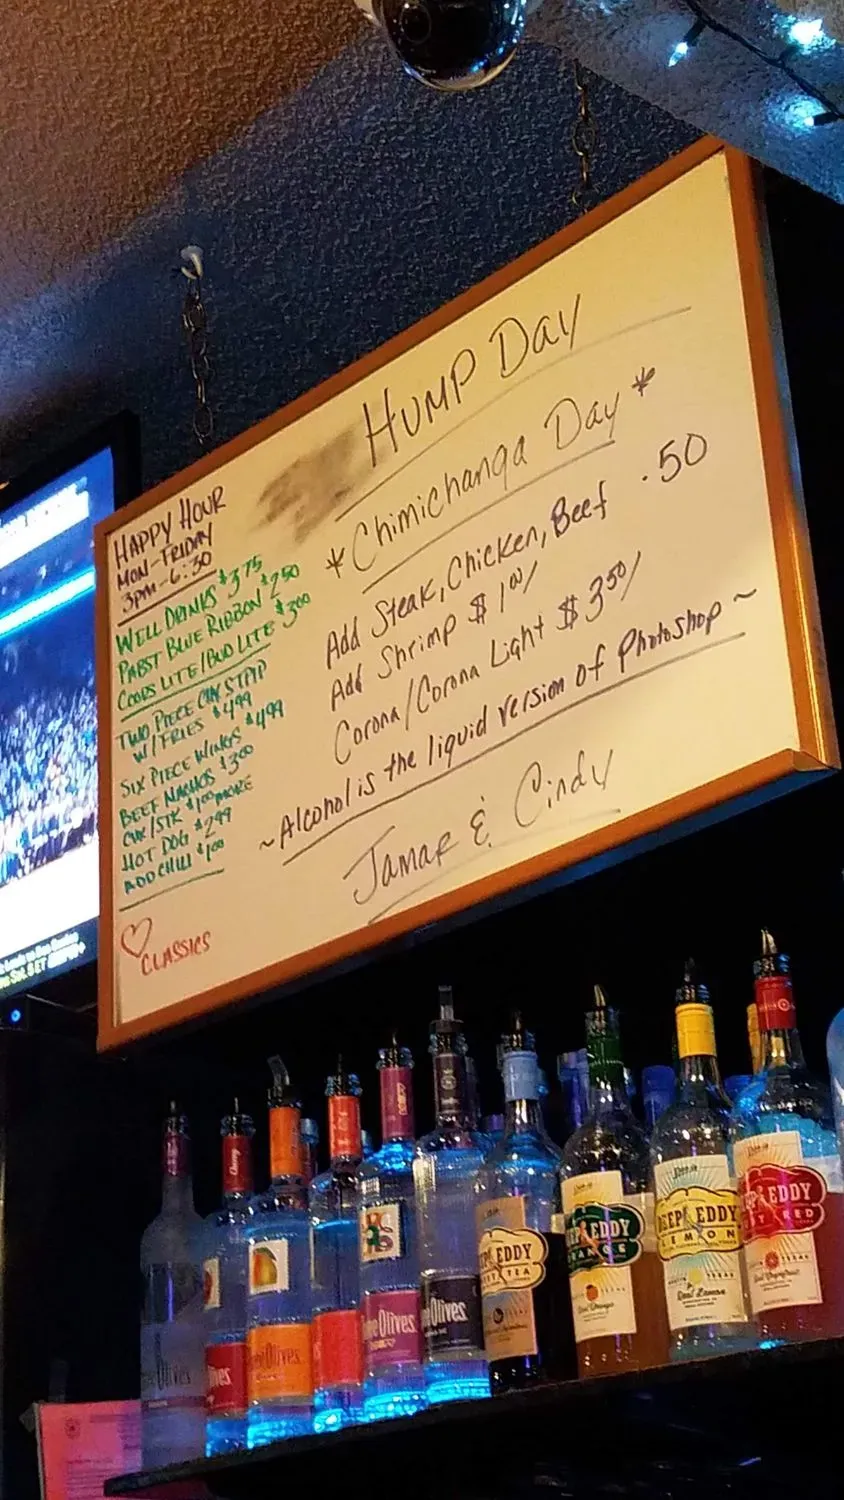 HUMP DAY
*Chimichanga Day*
Add Steak, Chicken, Beef .50
Add Shrimp $1.00/
Corona/Corona Light $3.50/
~Alcohol is the liquid version of Photoshop~
Jamar & Cindy
HAPPY HOUR
MON-FRIDAY
3PM-6:30
WELL DRINKS $3.75
PABST BLUE RIBBON $2.50
COORS LITE/BUD LITE $3.00
TWO PIECE CKN STRIP
W/FRIES $4.99
SIX PIECE WINGS $4.99
BEEF NACHOS $3.00
CHK/STK $1.00 MORE
HOT DOG $2.99
ADD CHILI $1.00
CLASSICS
Cherry
Olives
Olives
Olives
Olives
EEP EDDY
TEA
DEEP EDDY
ORANGE
Real Orange
DEEP EDDY
LEMON
Real Lemon
DEEP EDDY
RUBY RED